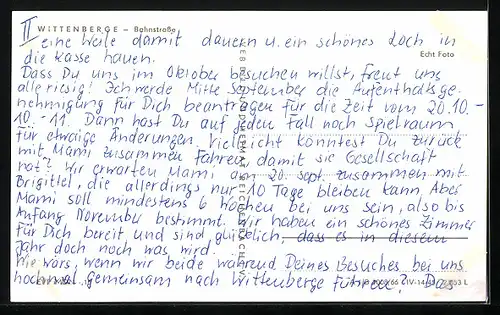 II WITTENBERGE – Bahnstraße
eine Weile damit dauern u. ein schönes Loch in
die Kasse hauen. Echt Foto
Dass Du uns im Oktober besuchen willst, freut uns
alle riesig! Ich werde Mitte September die Aufenthaltsge-
nehmigung für Dich beantragen für die Zeit vom 20.10.-
10.-11. Dann hast Du auf jeden Fall noch Spielraum
für etwaige Änderungen. Vielleicht könntest Du zurück
mit Mami zusammen fahren, damit sie Gesellschaft
hat? Wir erwarten Mami am 20. Sept. zusammen mit
Brigittel, die allerdings nur 10 Tage bleiben kann. Aber
Mami soll mindestens 6 Wochen bei uns sein, also bis
Anfang November bestimmt. Wir haben ein schönes Zimmer
für Dich bereit und sind glücklich, dass es in diesem
Jahr doch noch was wird.
Wie wärs, wenn wir beide während Deines Besuches bei uns
hochmal gemeinsam nach Wittenberge führen? Das